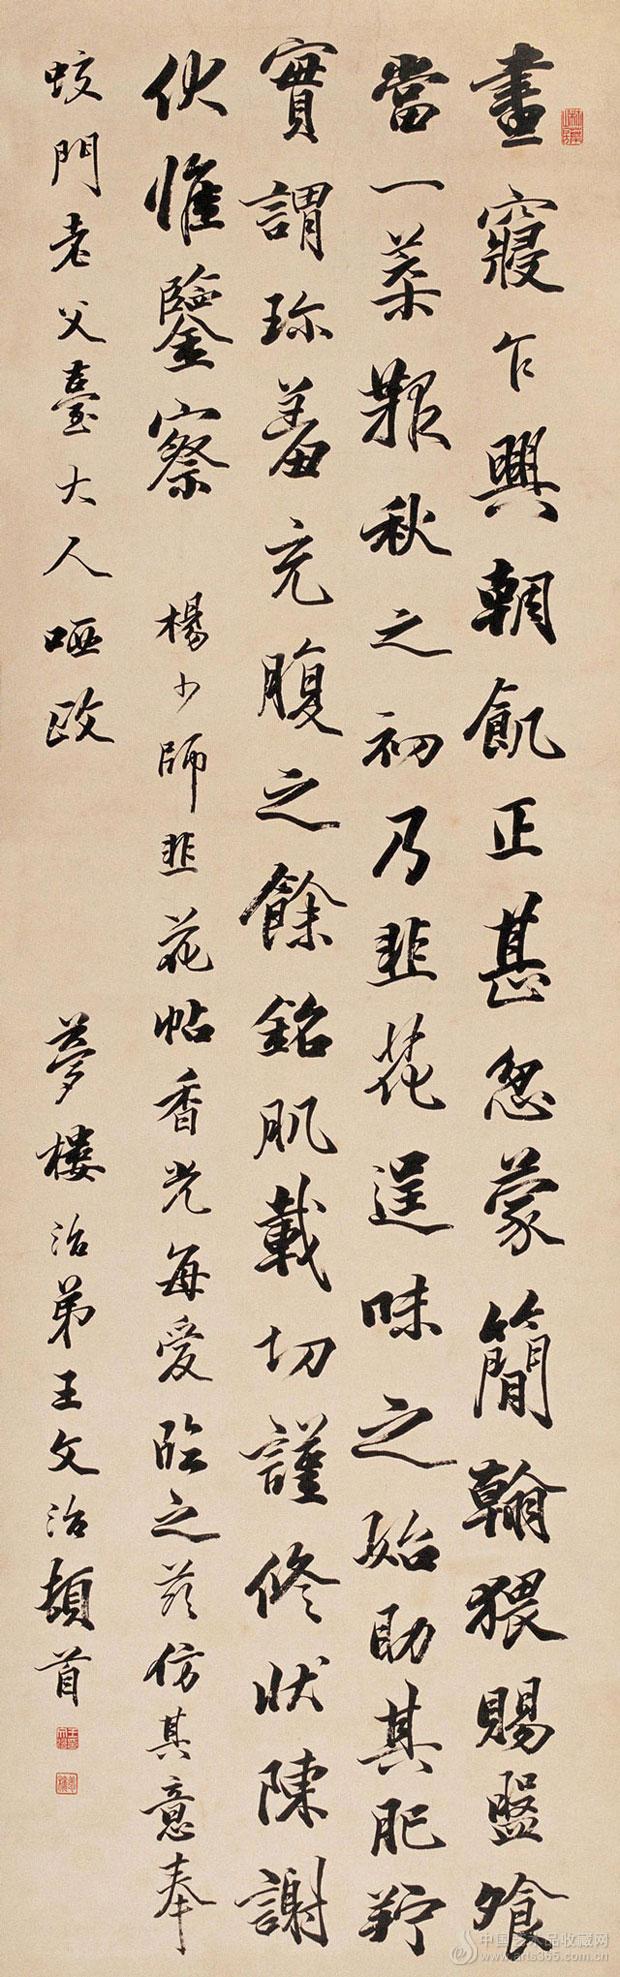 晝寢乍興朝飢正甚忽蒙簡翰猥賜盤飧
當一葉報秋之初乃韭花逞味之始助其肥羜
實謂珍羞充腹之餘銘肌載切謹修狀陳謝
伏惟鑒察 楊少師韭花帖香光每愛臨之茲仿其意奉
蛟門老父臺大人哂政 夢樓治弟王文治頓首
中国艺术品收藏网
www.arts365.com.cn